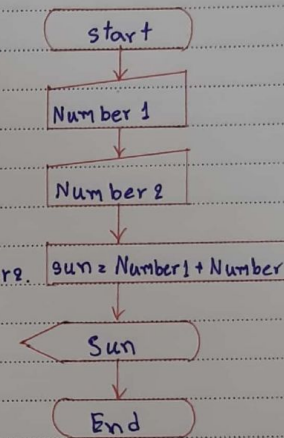 start
Number 1
Number 2
r2. sun = Number1 + Number
Sun
End